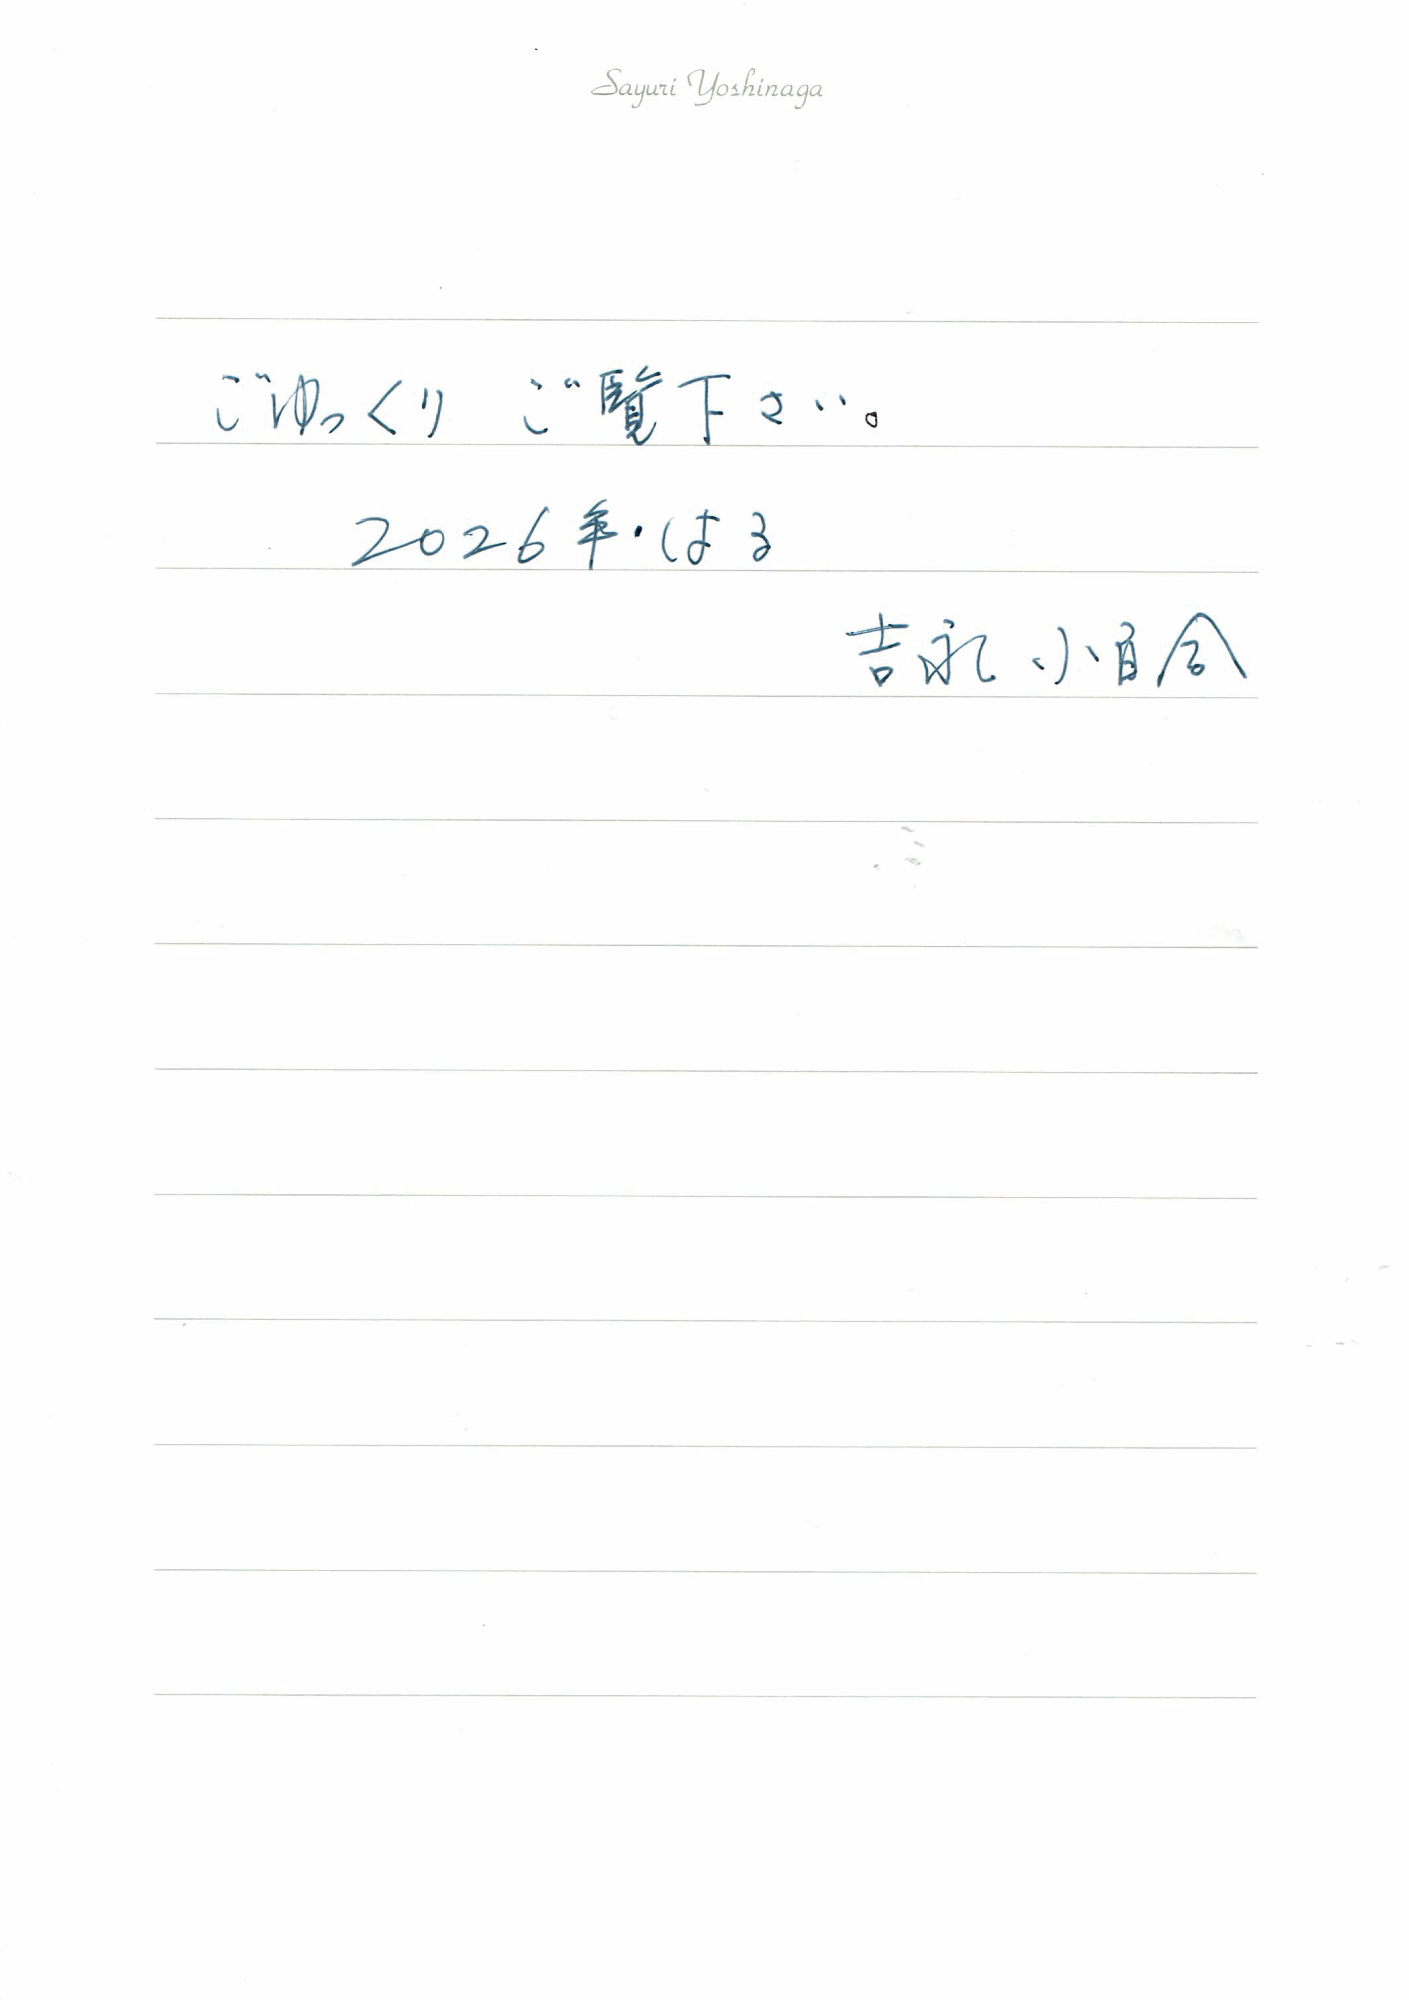 Sayuri Yoshinaga
ごゆっくり ご覧下さい。
2026年・はる
吉永小百合